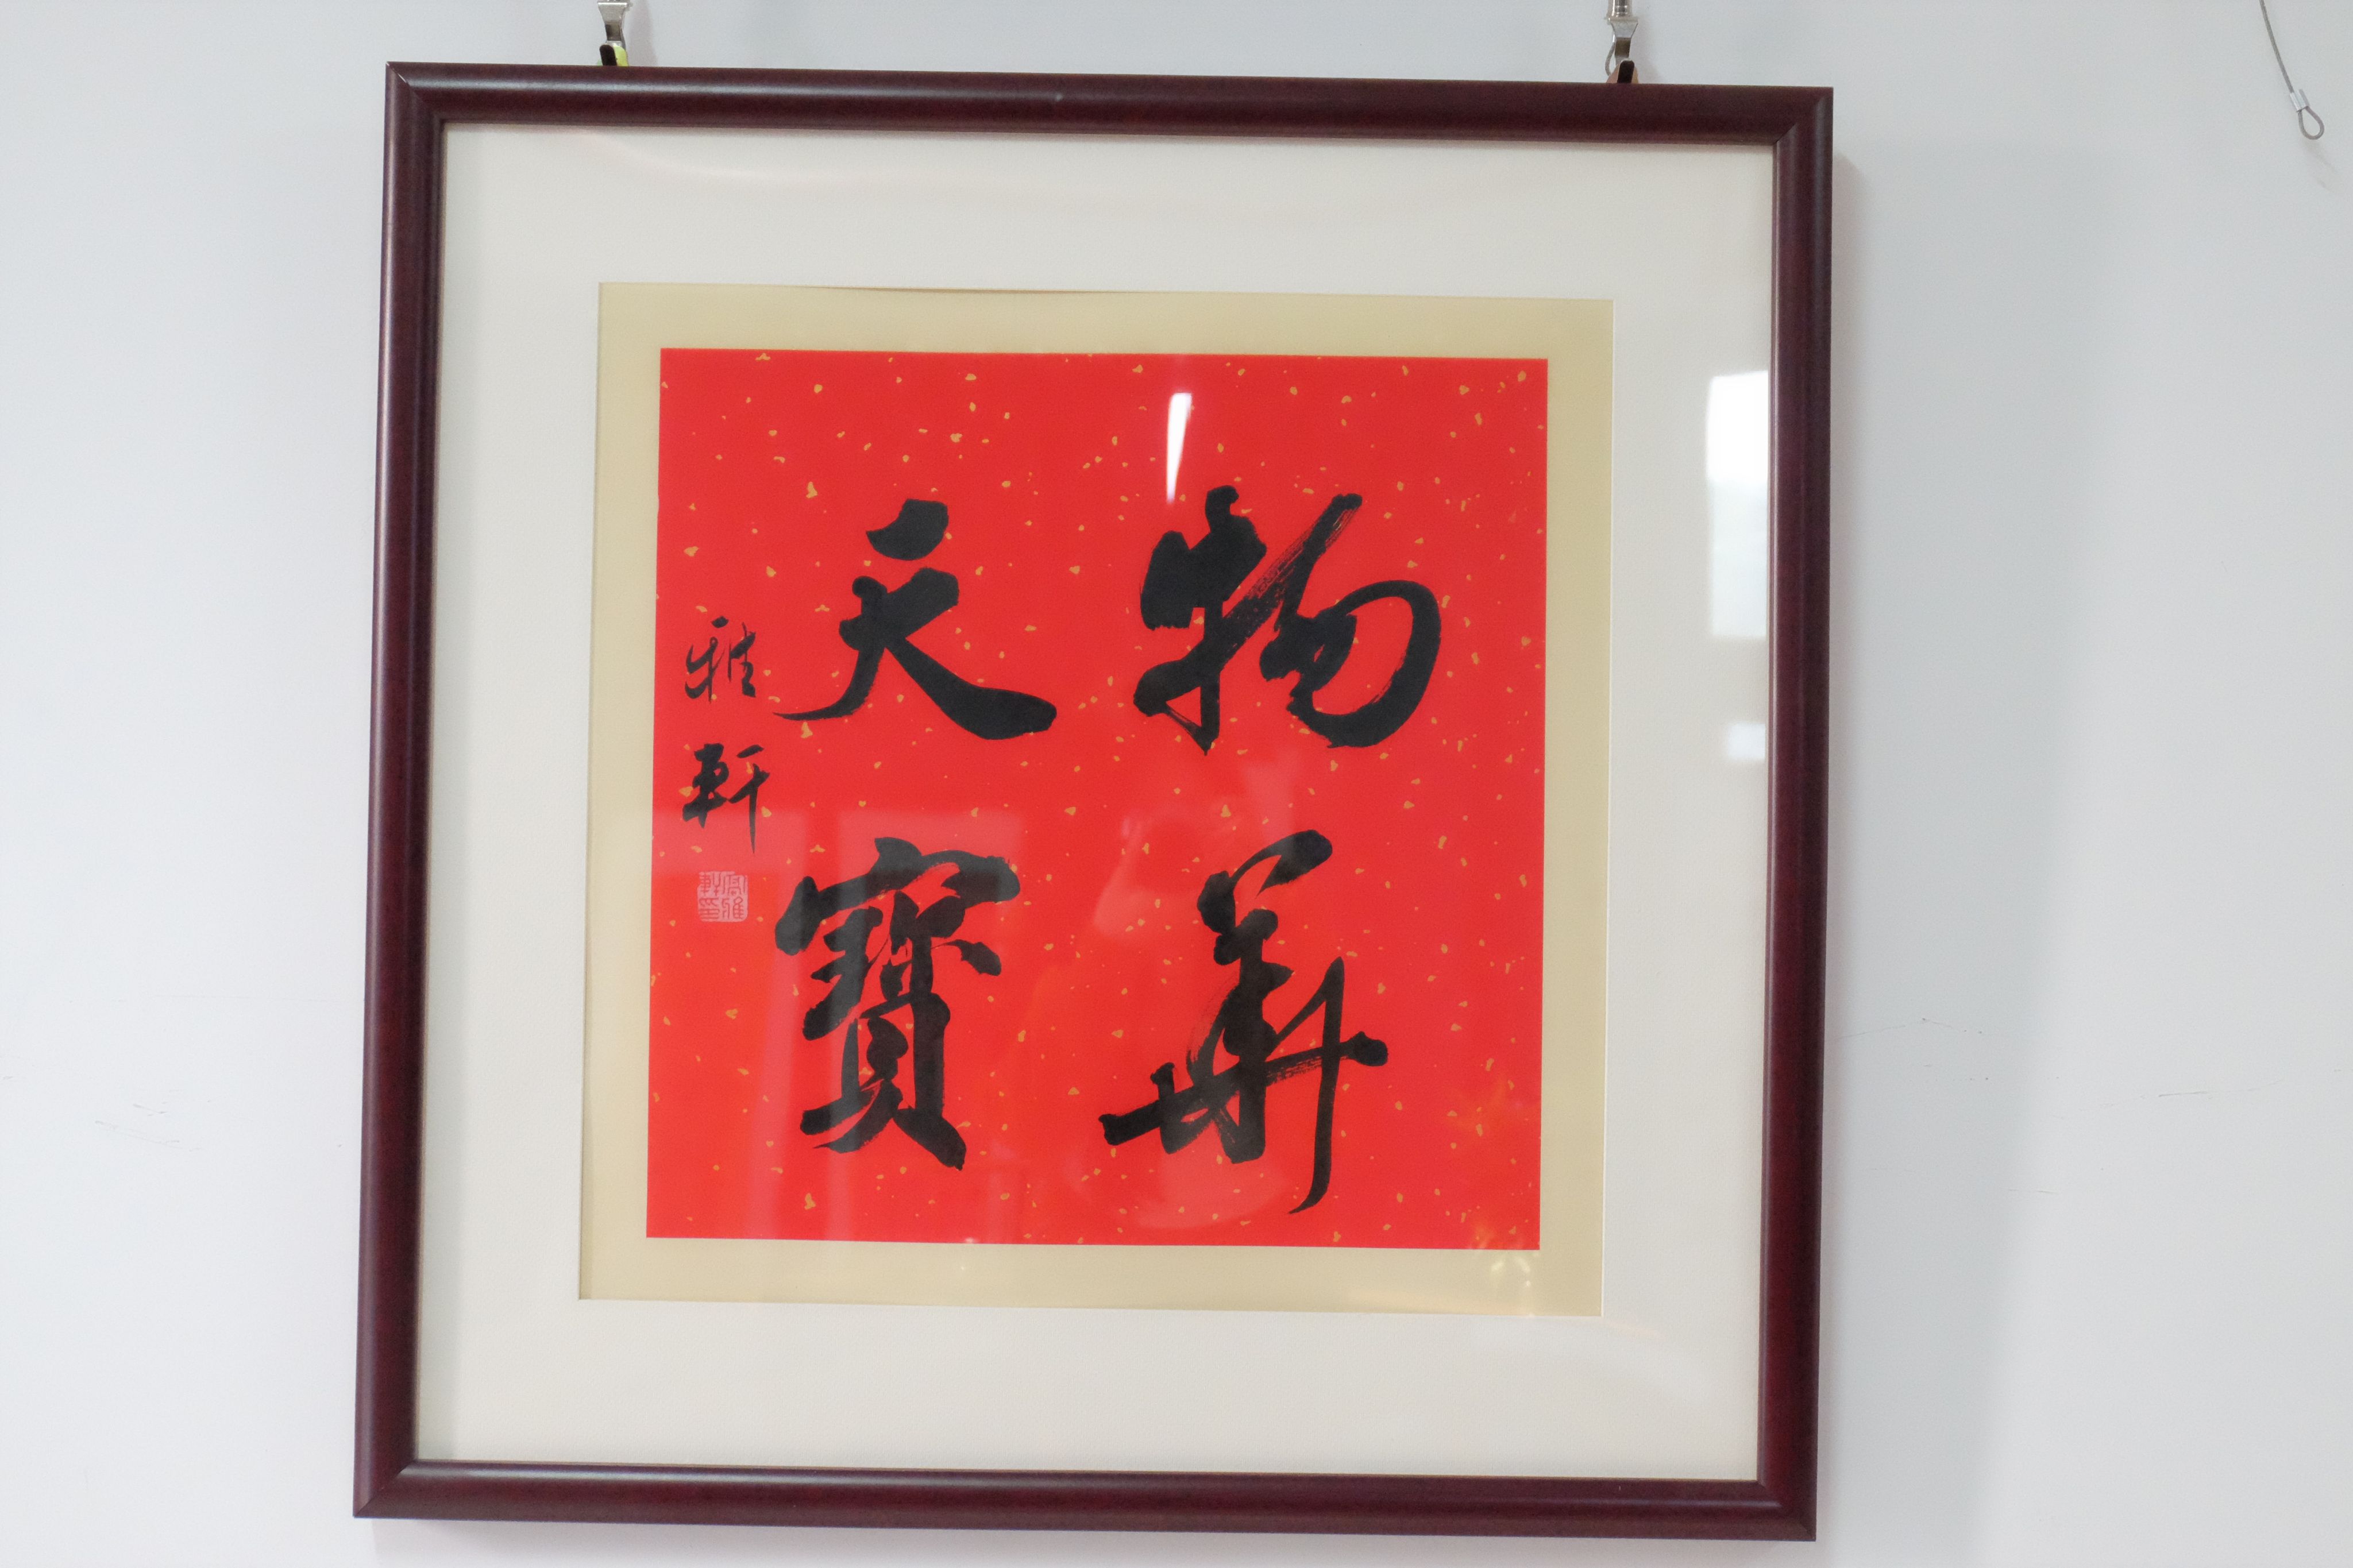 物華
天寶
雅軒